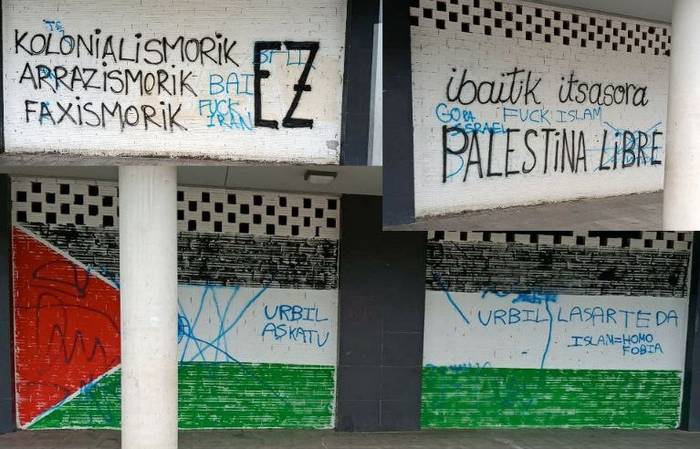 KOLONIALISMORIK
ARRAZISMORIK BAI
FAXISMORIK EZ
FUCK
IRAN
ibaitik itsasora
GORA FUCK ISLAM
ISRAEL
PALESTINA LIBRE
URBIL
ASKATU
URBIL LASARTE DA
ISLAM=HOMO
FOBIA